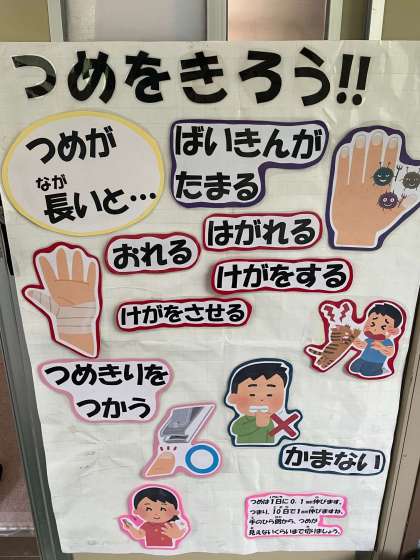 つめをきろう!!
つめが
なが
長いと…
ばいきんが
たまる
おれる
はがれる
けがをさせる
けがをする
つめきりを
つかう
かまない
つめは1日に0.1mm伸びます。
つまり、10日で1mm伸びますね。
手のひら側から、つめが
見えないくらいまで切りましょう。